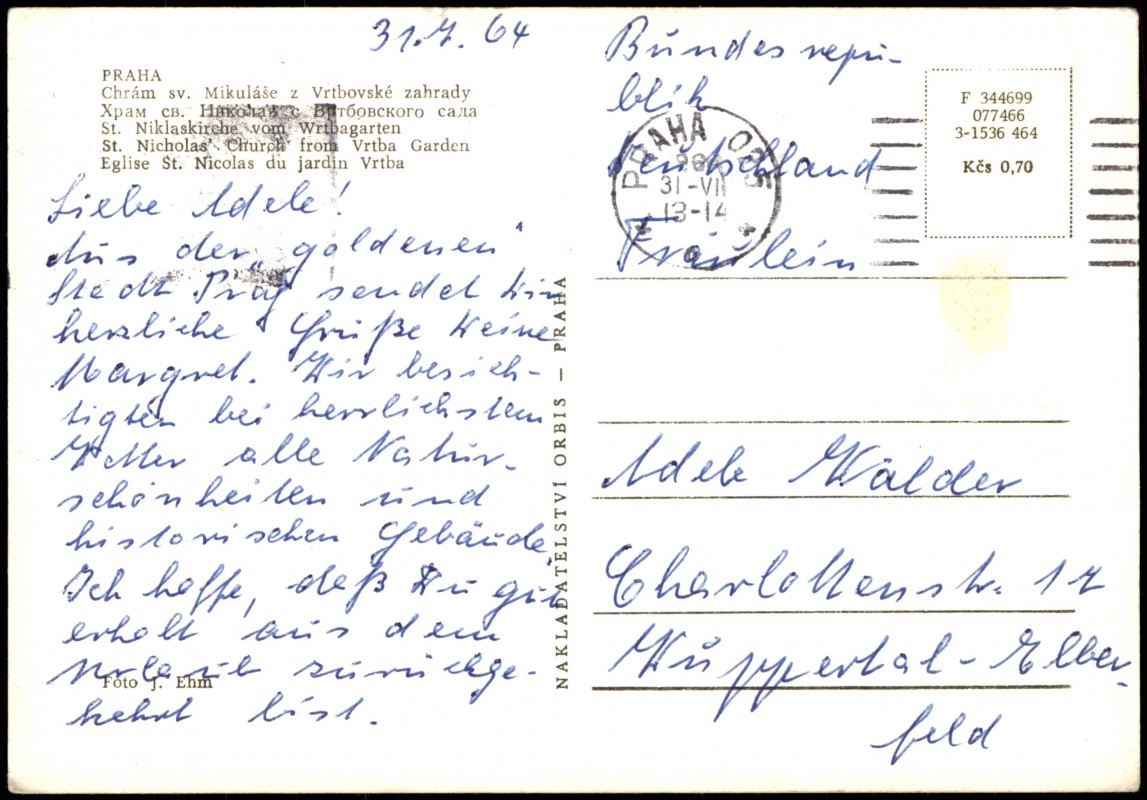 31.7.64
PRAHA
Chrám sv. Mikuláše z Vrtbovské zahrady
Храм св. Николая с Втбовского сада
St. Niklaskirche vom Wrtbagarten
St. Nicholas' Church from Vrtba Garden
Eglise St. Nicolas du jardin Vrtba
Liebe Adele!
Aus der „goldenen"
Stadt Prag sendet Dir
herzliche Grüße Deine
Margret. Wir besich-
tigten bei herrlichstem
Wetter alle Natur-
schönheiten und
historischen Gebäude.
Ich hoffe, daß Du gut
erholt aus dem
Urlaub zurückge-
kehrt bist.
Foto J. Ehm
NAKLADATELSTVÍ ORBIS — PRAHA
Bundesrepu-
blik
Deutschland
Fräulein
Adele Wälder
Charlottenstr. 17
Wuppertal-Elber-
feld
PRAHA
31-VII
13-14
F 344699
077466
3-1536 464
Kčs 0,70